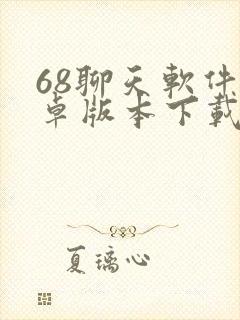 68聊天軟件
卓版本下載
夏璃心